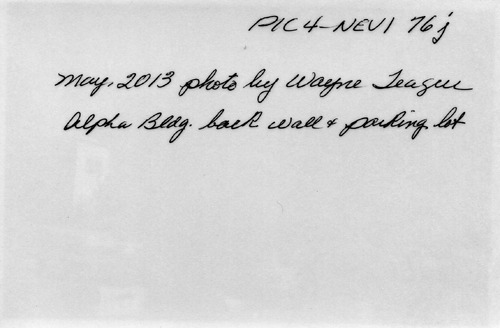 PIC4-NEVI 76j
May, 2013 photo by Wayne Teague
Alpha Bldg. back wall + parking lot